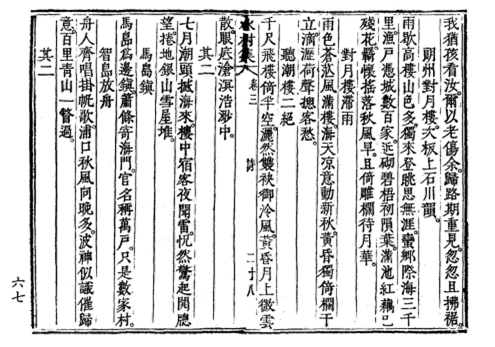 我猶孩看汝爾以老傷余歸路期重見忽忽且拂裾
朔州對月樓次板上石川韻
雨歇高樓山色多獨來登眺思無涯蠻鄉際海三千
里漁戶憑城數百家近砌碧梧初隕葉滿池紅藕已
殘花羈懷搖落秋風早且倚雕欄待月華
對月樓滯雨
雨色蒼茫風滿樓海天涼意動新秋黃昏獨倚欄干
立滴瀝荷聲摠客愁
聽潮樓二絕
千尺飛樓倚半空灑然雙袂御泠風黃昏月上微雲
水村集 卷三 詩 二十八
散眼底滄溟浩渺中
其二
七月潮頭撼海來樓中宿客夜聞雷恍然驚起開牕
望捲地銀山雪屋堆
馬島鎮
馬島爲邊鎮蕭條寄海門官名稱萬戶只是數家村
智島放舟
舟人齊唱掛帆歌浦口秋風向晚多波神似識催歸
意百里靑山一瞥過
其二
六七